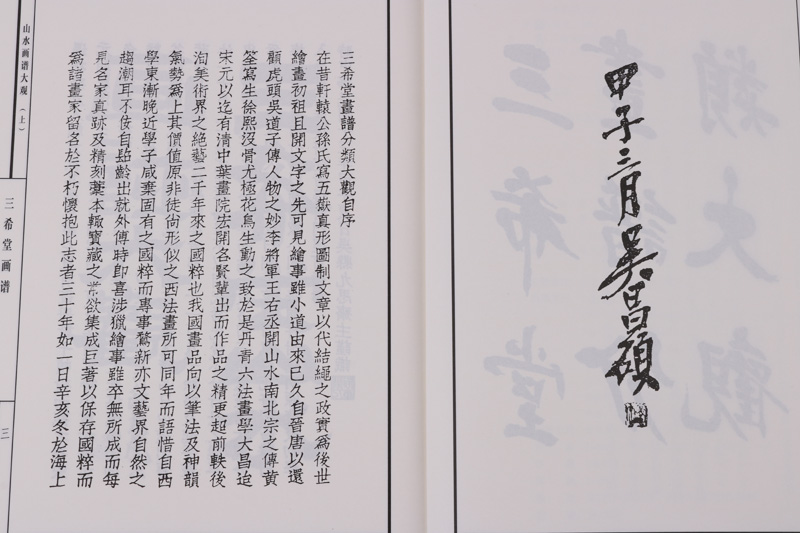 甲子三月吳昌碩
三希堂畫譜分類大觀自序
在昔軒轅公孫氏寫五嶽真形圖制文章以代結繩之政實為後世
繪畫初祖且開文字之先可見繪事雖小道由來已久自晉唐以還
顧虎頭吳道子傳人物之妙李將軍王右丞開山水南北宗之傳黃
筌寫生徐熙沒骨尤極花鳥生動之致於是丹青六法畫學大昌迨
宋元以迄有清中葉畫院宏開名賢輩出而作品之精更超前軼後
洵美術界之絕藝二千年來之國粹也我國畫品向以筆法及神韻
氣勢為上其價值原非徒尚形似之西法畫所可同年而語惜自西
學東漸晚近學子咸棄固有之國粹而專事騖新亦文藝界自然之
趨潮耳不佞自髫齡出就外傅時即喜涉獵繪事雖卒無所成而每
見名家真跡及精刻槧本輒寶藏之常欲集成巨著以保存國粹而
為諸畫家留名於不朽懷抱此志者三十年如一日辛亥冬於海上
山水画谱大观（上）
三希堂画谱
三